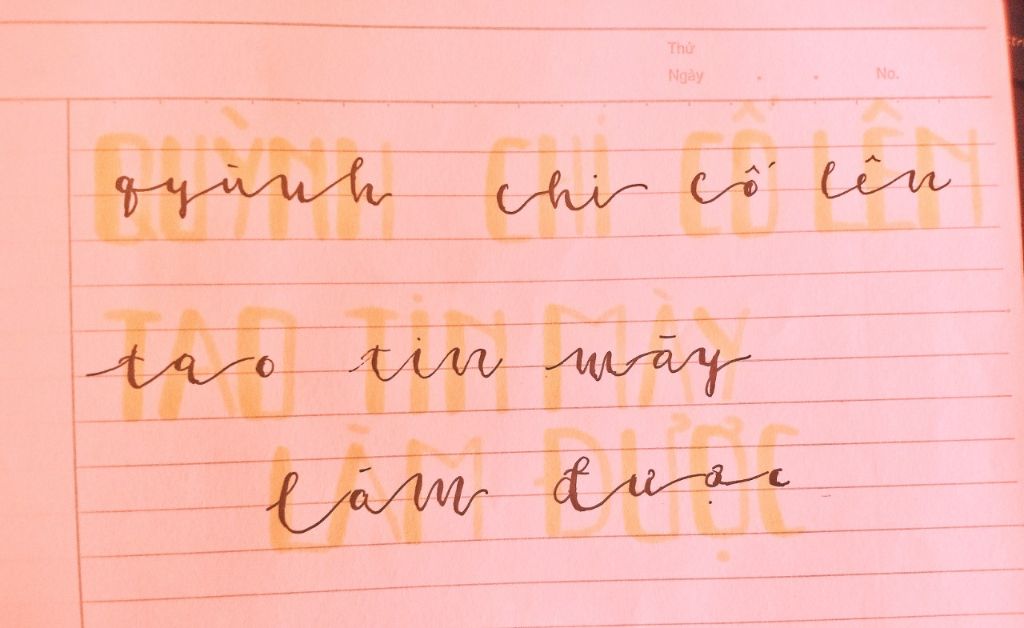 Thứ
Ngày . . No.
QUỲNH CHI CỐ LÊN
qyùnh chi cố lên
TAO TIN MÀY
tao tin mày
LÀM ĐƯỢC
làm được